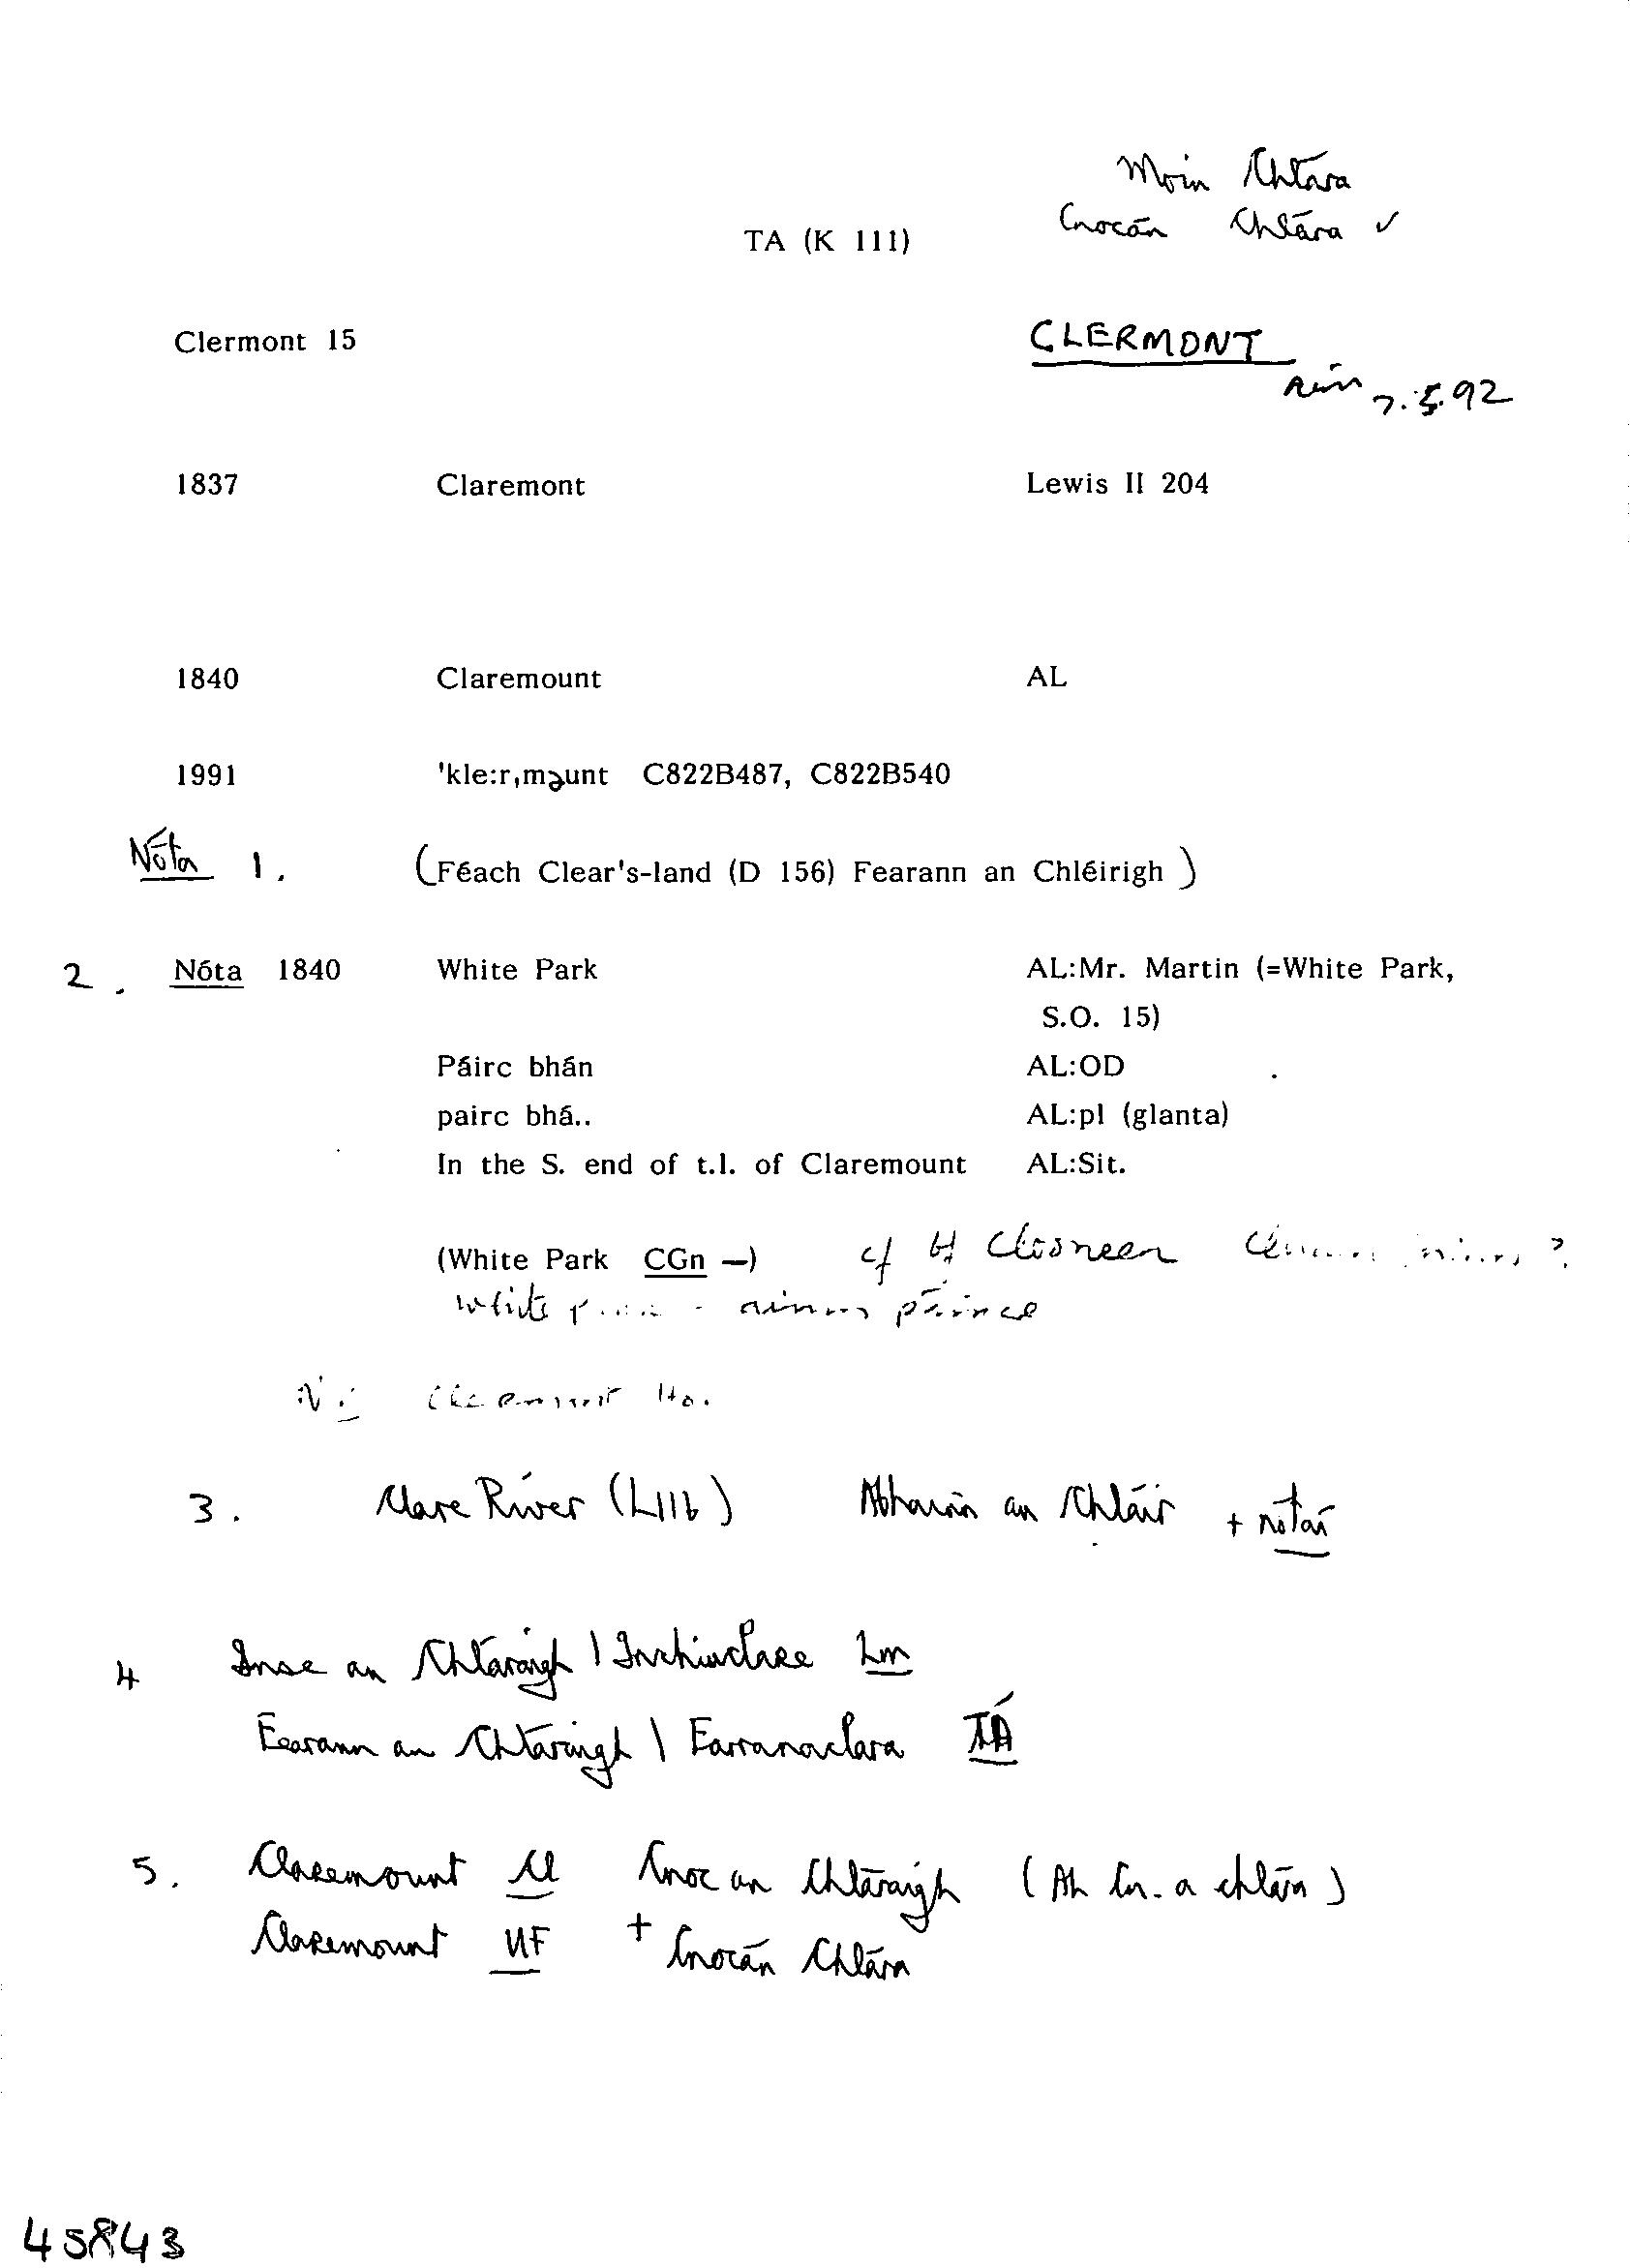 Móin Chlára
Cnocán Chlára ✓
TA (K 111)
Clermont 15 CLERMONT
7.5.92
1837 Claremont Lewis II 204
1840 Claremount AL
1991 'kle:r,məunt C822B487, C822B540
Nóta 1. (Féach Clear's-land (D 156) Fearann an Chléirigh)
2. Nóta 1840 White Park AL:Mr. Martin (=White Park,
S.O. 15)
Páirc bhán AL:OD
pairc bhá.. AL:pl (glanta)
In the S. end of t.l. of Claremount AL:Sit.
(White Park CGn —) cf
White páirce
Ho.
3. Clare River (L11b) Abhainn an Chláir + nótaí
4 Inse an Chláraigh | Inchinclare Lm
Fearann an Chláraigh | Farranaclara TÁ
5. Claremount Cl Cnoc an Chláraigh (Ah Cn. a chlára)
Claremount UF + Cnocán Chlára
45843